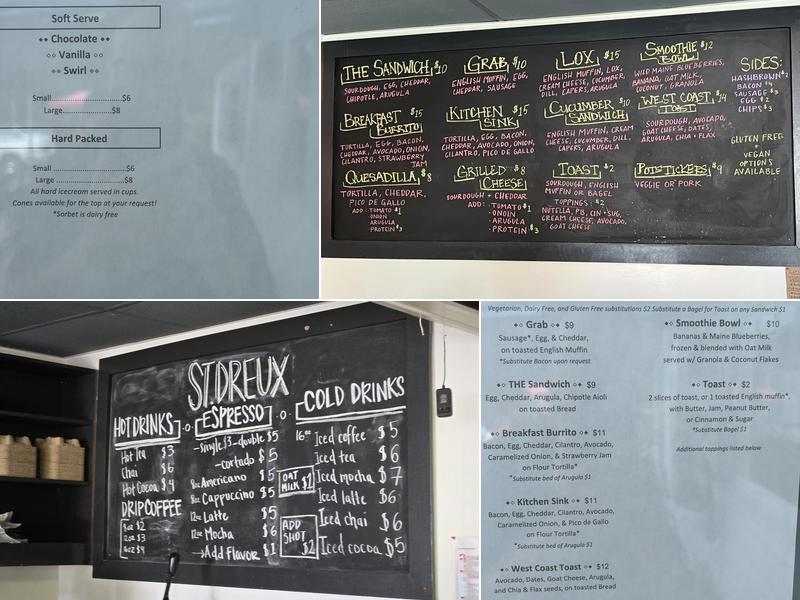 Soft Serve
Chocolate
Vanilla
Swirl
Small......................$6
Large......................$8
Hard Packed
Small ......................$6
Large ......................$8
All hard icecream served in cups.
Cones available for the top at your request!
*Sorbet is dairy free
THE SANDWICH $10
SOURDOUGH, EGG, CHEDDAR,
CHIPOTLE, ARUGULA
BREAKFAST $15
BURRITO
TORTILLA, EGG, BACON,
CHEDDAR, AVOCADO, ONION,
CILANTRO, STRAWBERRY
JAM
QUESADILLA $8
TORTILLA, CHEDDAR,
PICO DE GALLO
ADD: TOMATO $1
ONION
ARUGULA
PROTEIN $3
GRAB $10
ENGLISH MUFFIN, EGG,
CHEDDAR, SAUSAGE
KITCHEN $15
SINK
TORTILLA, EGG, BACON,
CHEDDAR, AVOCADO, ONION,
CILANTRO, PICO DE GALLO
GRILLED $8
CHEESE
SOURDOUGH + CHEDDAR
ADD: TOMATO $1
ONOIN
ARUGULA
PROTEIN $3
LOX $15
ENGLISH MUFFIN, LOX,
CREAM CHEESE, CUCUMBER,
DILL, CAPERS, ARUGULA
CUCUMBER $10
SANDWICH
ENGLISH MUFFIN, CREAM
CHEESE, CUCUMBER, DILL,
CAPERS, ARUGULA
TOAST $2
SOURDOUGH, ENGLISH
MUFFIN OR BAGEL
TOPPINGS: $2
NUTELLA, PB, CIN + SUG,
CREAM CHEESE, AVOCADO,
GOAT CHEESE
SMOOTHIE $12
BOWL
WILD MAINE BLUEBERRIES,
BANANA, OAT MILK,
COCONUT, GRANOLA
WEST COAST $14
TOAST
SOURDOUGH, AVOCADO,
GOAT CHEESE, DATES,
ARUGULA, CHIA + FLAX
POTSTICKERS $9
VEGGIE OR PORK
SIDES:
HASHBROWN $2
BACON $4
SAUSAGE $3
EGG $2
CHIPS $3
GLUTEN FREE
+
VEGAN
OPTIONS
AVAILABLE
ST. DREUX
HOT DRINKS
Hot tea $3
Chai $6
Hot Cocoa $4
DRIP COFFEE
8oz $2
12oz $3
16oz $4
ESPRESSO
-single $3-double $5
-cortado $5
8oz Americano $5
8oz Cappuccino $5
12oz Latte $5
12oz Mocha $6
→Add Flavor $1
OAT
MILK $1
ADD
SHOT
$2
COLD DRINKS
16oz Iced coffee $5
Iced tea $6
Iced mocha $7
Iced latte $6
Iced chai $6
Iced cocoa $5
Vegetarian, Dairy Free, and Gluten Free substitutions $2 Substitute a Bagel for Toast on any Sandwich $1
Grab $9
Sausage*, Egg, & Cheddar,
on toasted English Muffin
*Substitute Bacon upon request
THE Sandwich $9
Egg, Cheddar, Arugula, Chipotle Aioli
on toasted Bread
Breakfast Burrito $11
Bacon, Egg, Cheddar, Cilantro, Avocado,
Caramelized Onion, & Strawberry Jam
on Flour Tortilla*
*Substitute bed of Arugula $1
Kitchen Sink $11
Bacon, Egg, Cheddar, Cilantro, Avocado,
Caramelized Onion, & Pico de Gallo
on Flour Tortilla*
*Substitute bed of Arugula $1
West Coast Toast $12
Avocado, Dates, Goat Cheese, Arugula,
and Chia & Flax seeds, on toasted Bread
Smoothie Bowl $10
Bananas & Maine Blueberries,
frozen & blended with Oat Milk
served w/ Granola & Coconut Flakes
Toast $2
2 slices of toast, or 1 toasted English muffin*,
with Butter, Jam, Peanut Butter,
or Cinnamon & Sugar
*Substitute Bagel $1
Additional toppings listed below